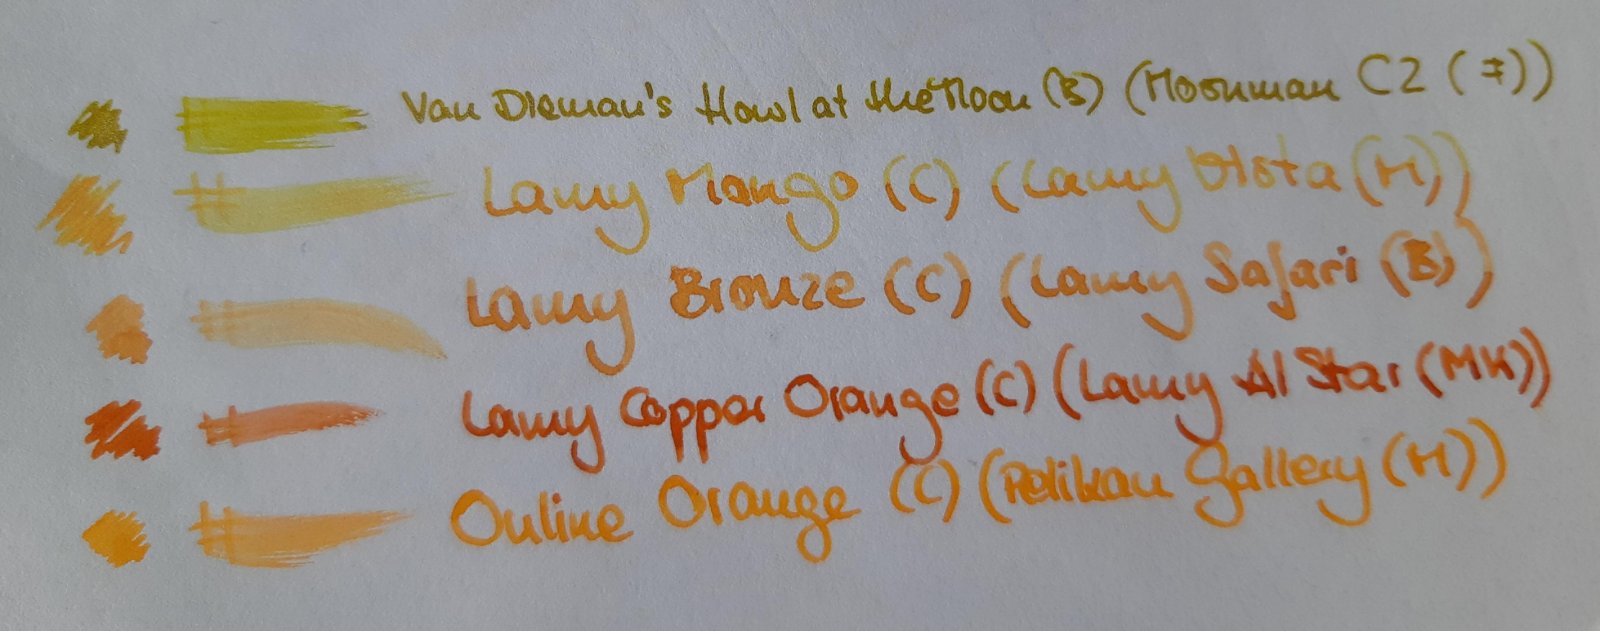 Van Dieman's Howl at the Moon (B) (Moonman C2 (F))
Lamy Mango (C) (Lamy Vista (M))
Lamy Bronze (C) (Lamy Safari (B))
Lamy Copper Orange (C) (Lamy Al Star (MK))
Online Orange (C) (Pelikan Gallery (M))